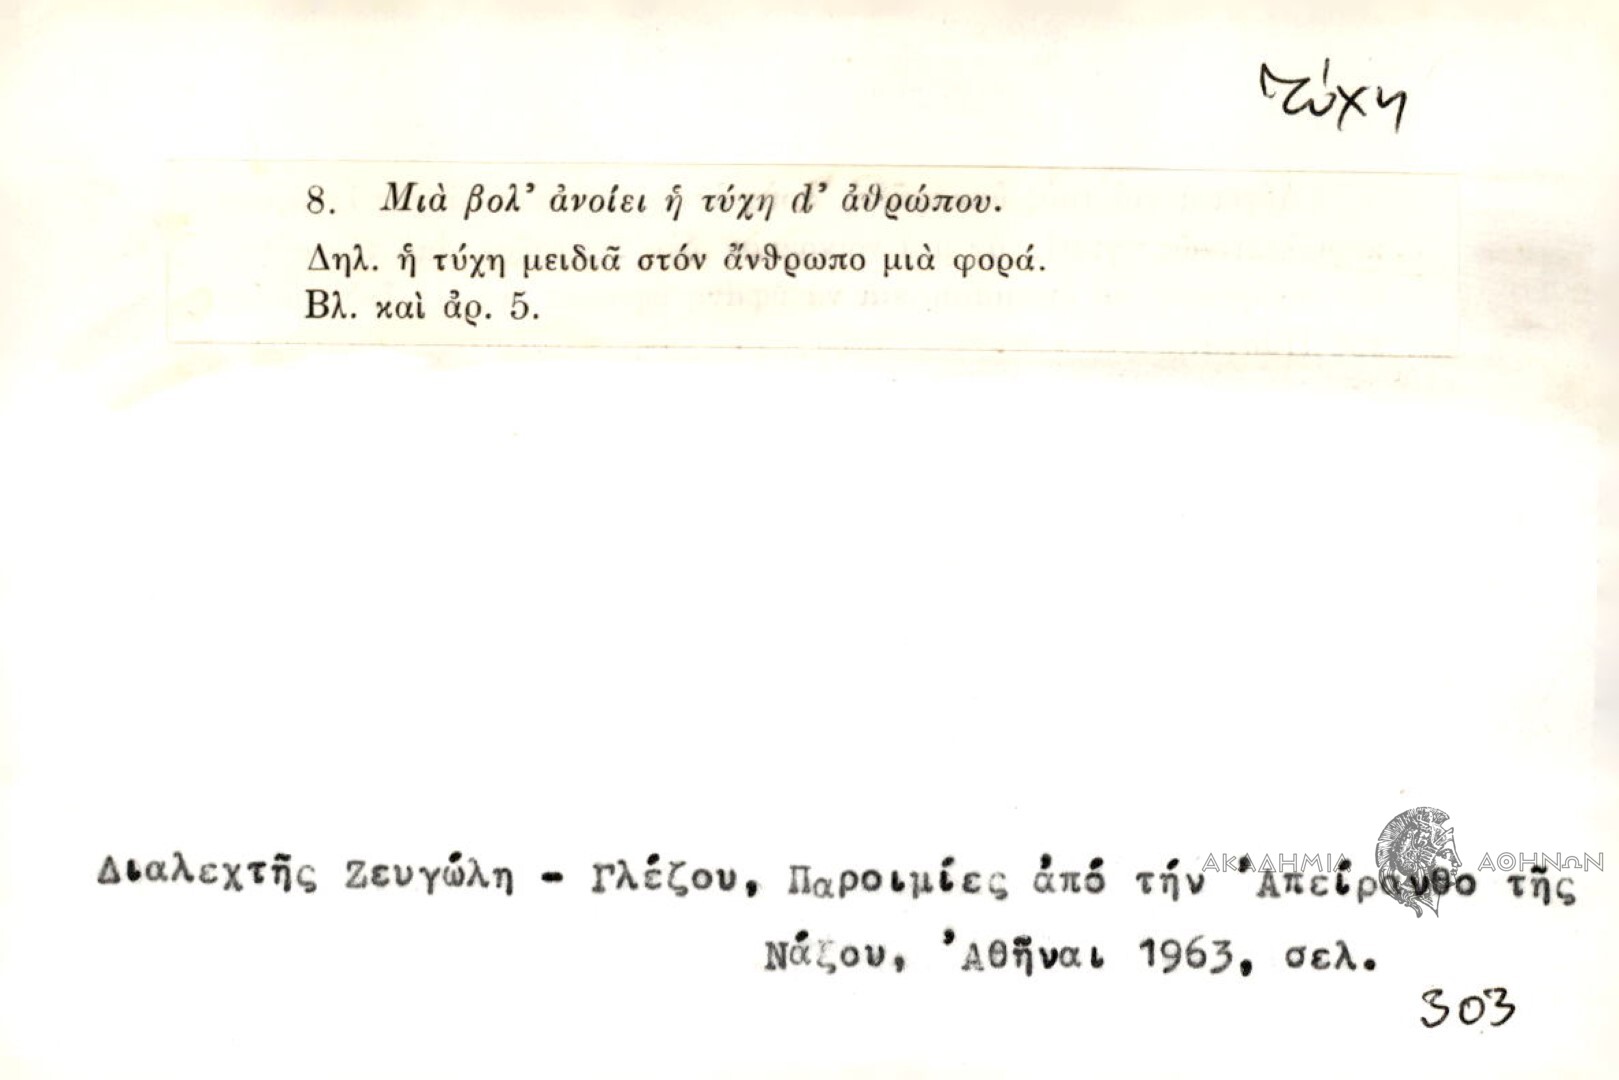 τύχη
8. Μιὰ βολ’ ἀνοίει ἡ τύχη d’ ἀθρώπου.
Δηλ. ἡ τύχη μειδιᾶ στόν ἄνθρωπο μιὰ φορά.
Βλ. καὶ ἀρ. 5.
ΑΚΑΔΗΜΙΑ ΑΘΗΝΩΝ
Διαλεχτῆς Ζευγώλη - Γλέζου, Παροιμίες ἀπό τήν Ἀπείρανθο τῆς
Νάξου, Ἀθῆναι 1963, σελ.
303